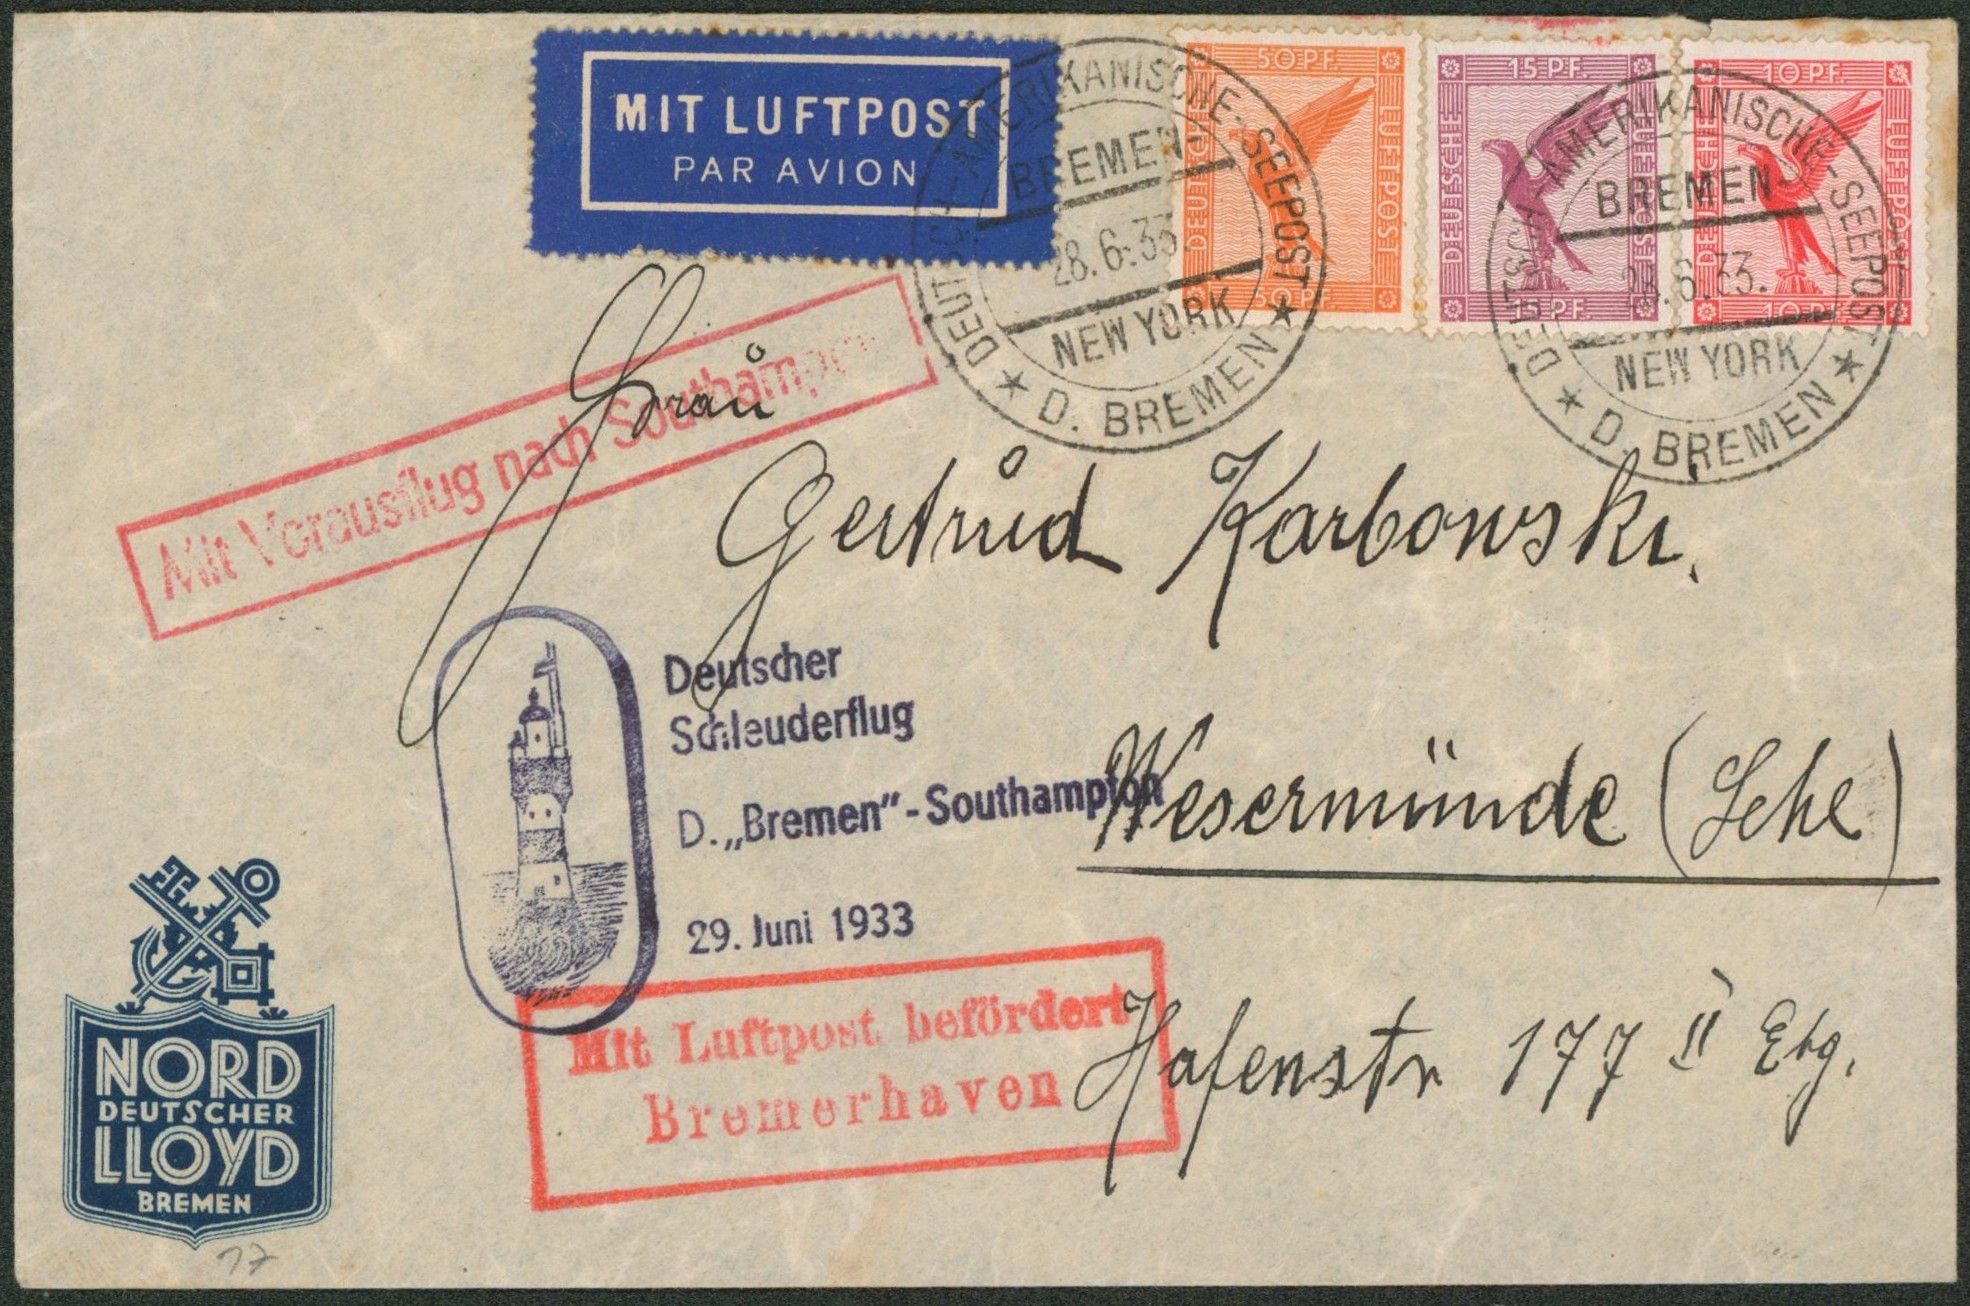 MIT LUFTPOST
PAR AVION
50 PF.
DEUTSCHE
LUFTPOST
50 PF.
15 PF.
DEUTSCHE
LUFTPOST
15 PF.
10 PF.
DEUTSCHE
LUFTPOST
10 PF.
DEUTSCH-AMERIKANISCHE-SEEPOST
BREMEN-
28.6.33.
NEW YORK
★ D. BREMEN ★
DEUTSCH-AMERIKANISCHE-SEEPOST
BREMEN-
28.6.33.
NEW YORK
★ D. BREMEN ★
Mit Vorausflug nach Southampton
Frau
Gertrud Karbowski.
Deutscher
Schleuderflug
D. „Bremen" - Southampton
29. Juni 1933
Wesermünde (Lehe)
Mit Luftpost befördert
Bremerhaven
Hafenstr 177 II Etg.
NORD
DEUTSCHER
LLOYD
BREMEN
17